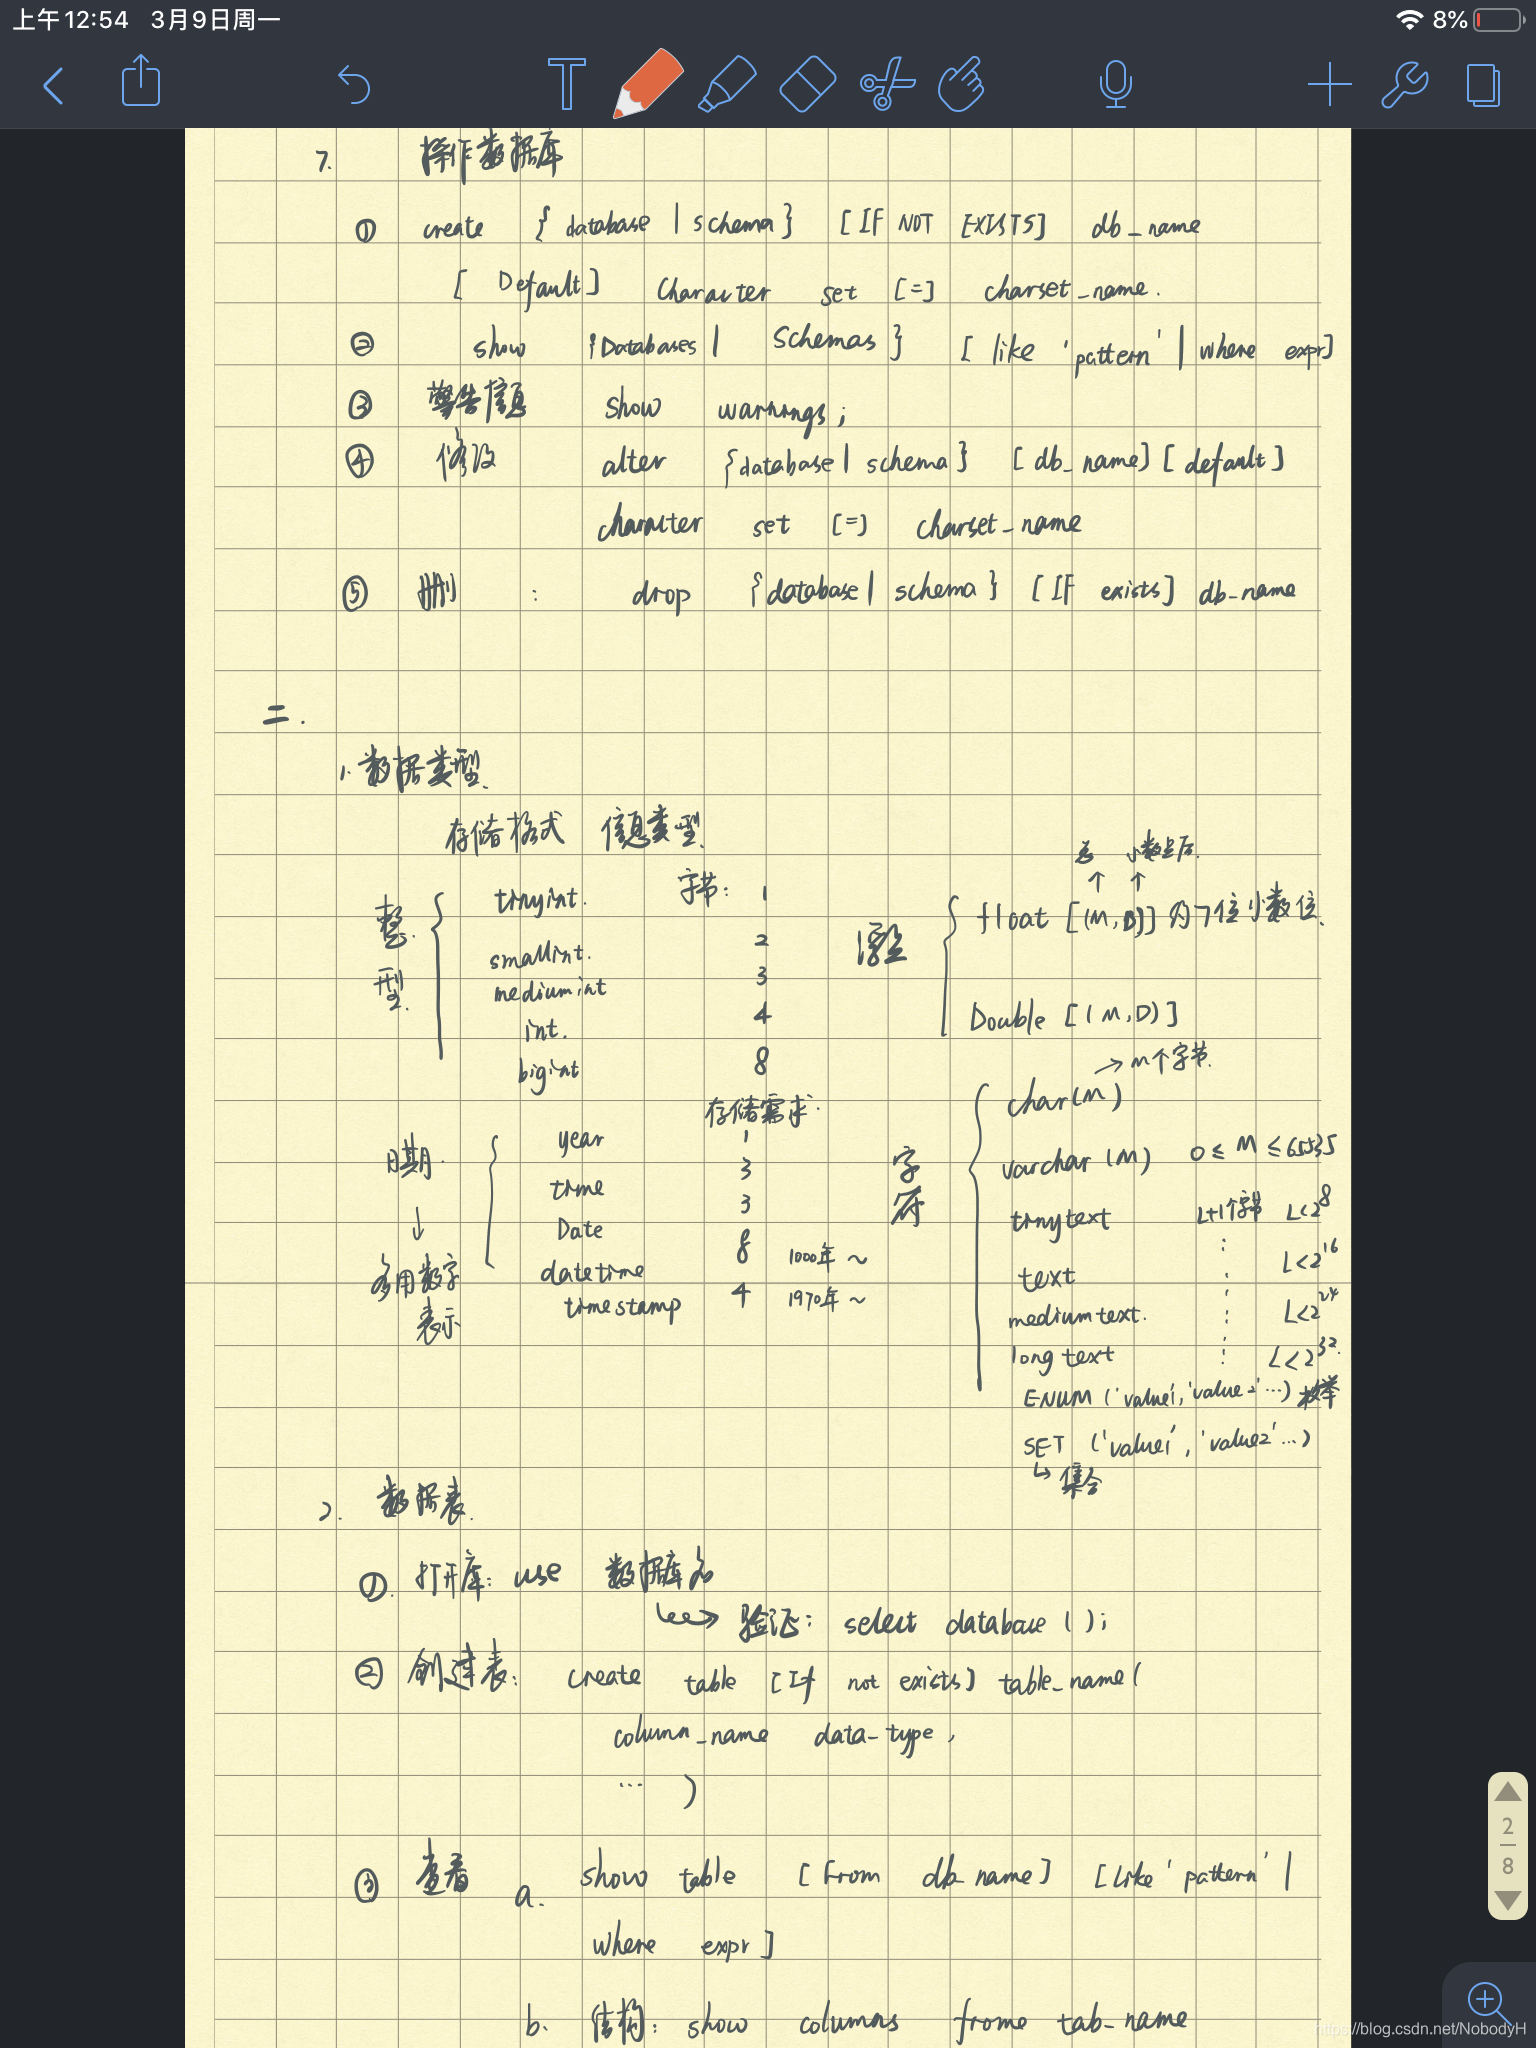 上午12:54 3月9日周一
8%
7. 操作数据库
① create {database | schema} [IF NOT EXISTS] db_name
[Default] Character set [=] charset_name.
② show {Databases | Schemas} [like 'pattern' | where expr]
③ 警告信息 show warnings;
④ 修改 alter {database | schema} [db_name] [default]
character set [=] charset_name
⑤ 删 : drop {database | schema} [IF exists] db_name
二.
1. 数据类型.
存储格式 信息类型.
整型.
字节:
tinyint. 1
smallint. 2
mediumint 3
int. 4
bigint 8
浮点
总 小数点后.
float [(M,D)] 为7位小数位.
Double [(M,D)]
日期.
↓
多用数字
表示
存储需求.
year 1
time 3
Date 3
datetime 8 1000年~
timestamp 4 1970年~
字符
char(M) → M个字节.
varchar(M) 0≤M≤65535
tinytext L+1个字节 L<2^8
text ⋮ L<2^16
mediumtext. ⋮ L<2^24
longtext ⋮ L<2^32.
ENUM ('value1','value2'...) 枚举
SET ('value1','value2'...)
↳ 集合
2. 数据表.
①. 打开库: use 数据库名
→ 验证: select database();
② 创建表: create table [If not exists] table_name(
column_name data_type,
... )
③ 查看 a. show table [From db_name] [like 'pattern' |
where expr]
b. 结构: show columns frome tab_name
2
8
https://blog.csdn.net/NobodyH